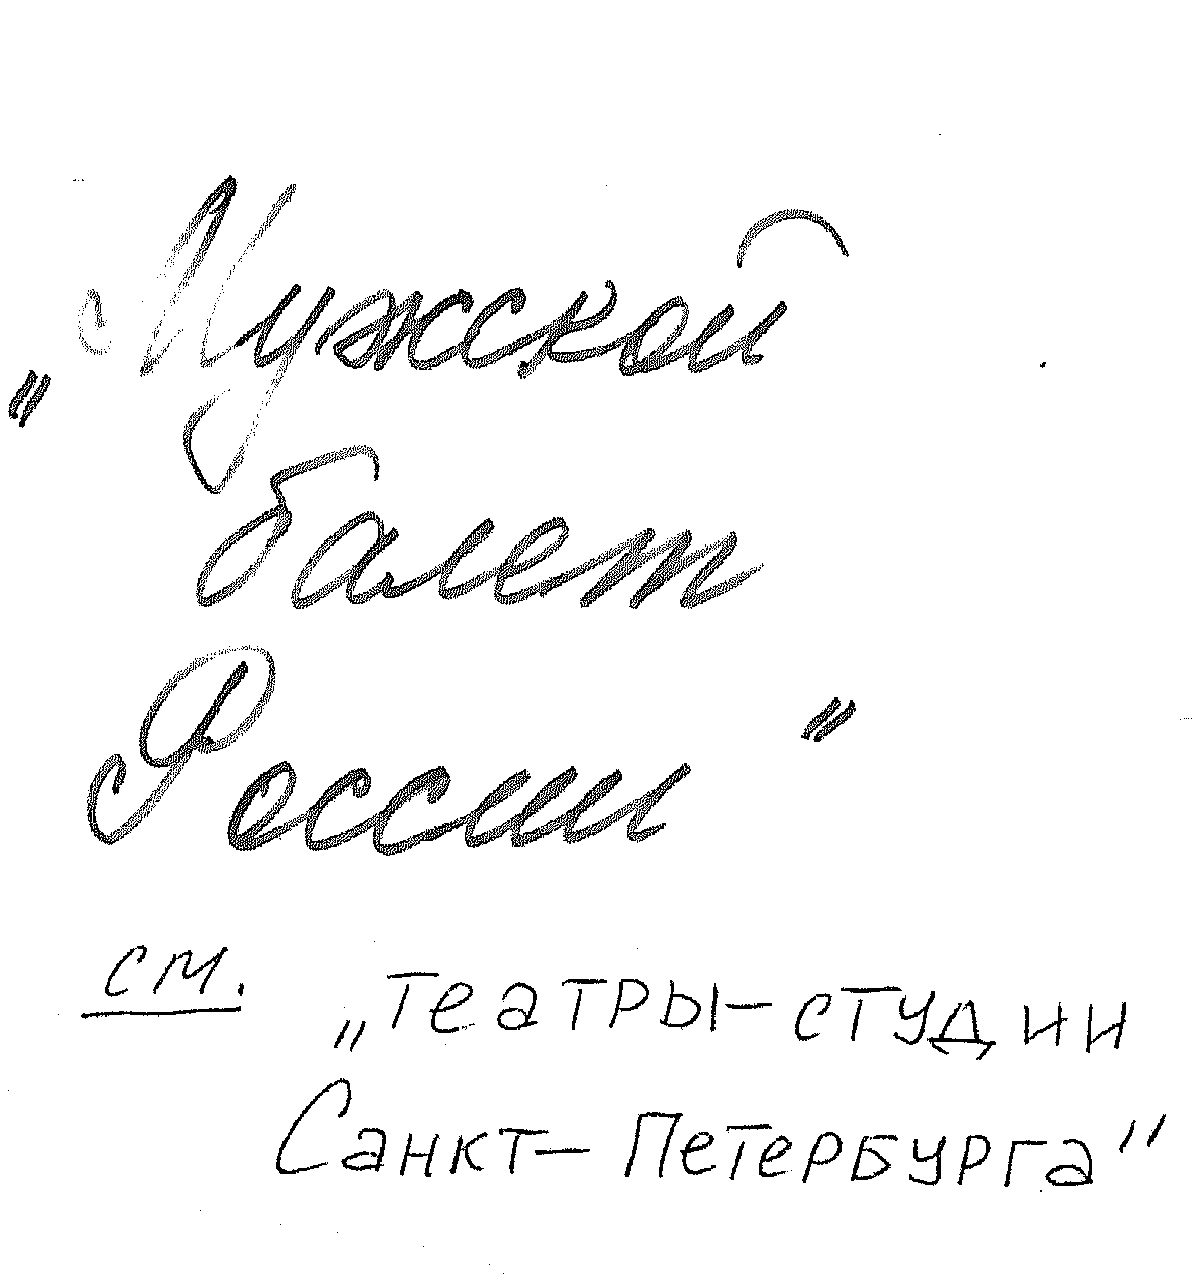 „Мужской
балет
России"
см. „Театры-студии
Санкт-Петербурга"